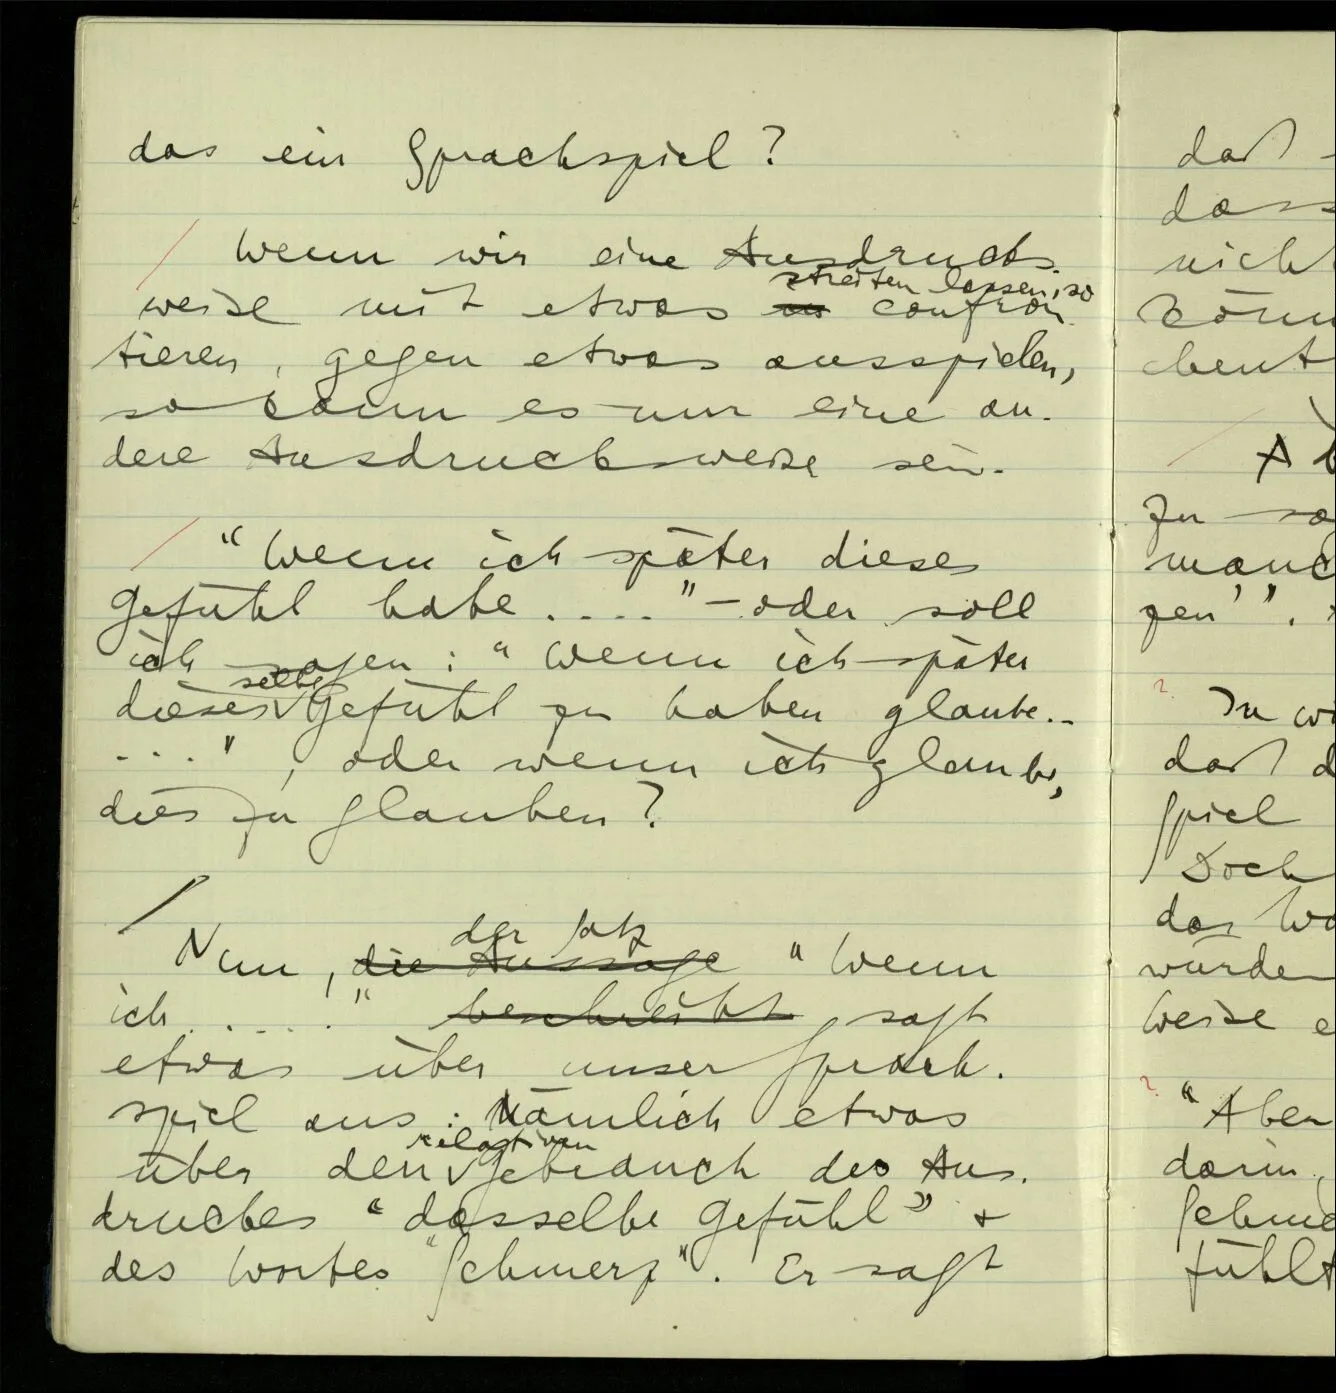 das ein Sprachspiel?
Wenn wir eine Ausdrucks-
streiten lassen, so
weise mit etwas confron-
tieren, gegen etwas ausspielen,
so kann es nur eine an-
dere Ausdrucksweise sein.
"Wenn ich später dieses
Gefühl habe ...." – oder soll
ich sagen: "Wenn ich später
selbe
dieses Gefühl zu haben glaube..
....", oder wenn ich glaube,
dies zu glauben?
der Satz
Nun, die Aussage "Wenn
ich ....." beschreibt sagt
etwas über unser Sprach-
spiel aus: Nämlich etwas
relativen
über den Gebrauch des Aus-
druckes "dasselbe Gefühl" &
des Wortes "Schmerz". Er sagt
daß
dass
nicht
Könn
A
zu
manc
gen'".
?
In
daß d
spiel
Doch
das Wo
würden
Weise e
?
"Aber
darin,
Schme
fühlt